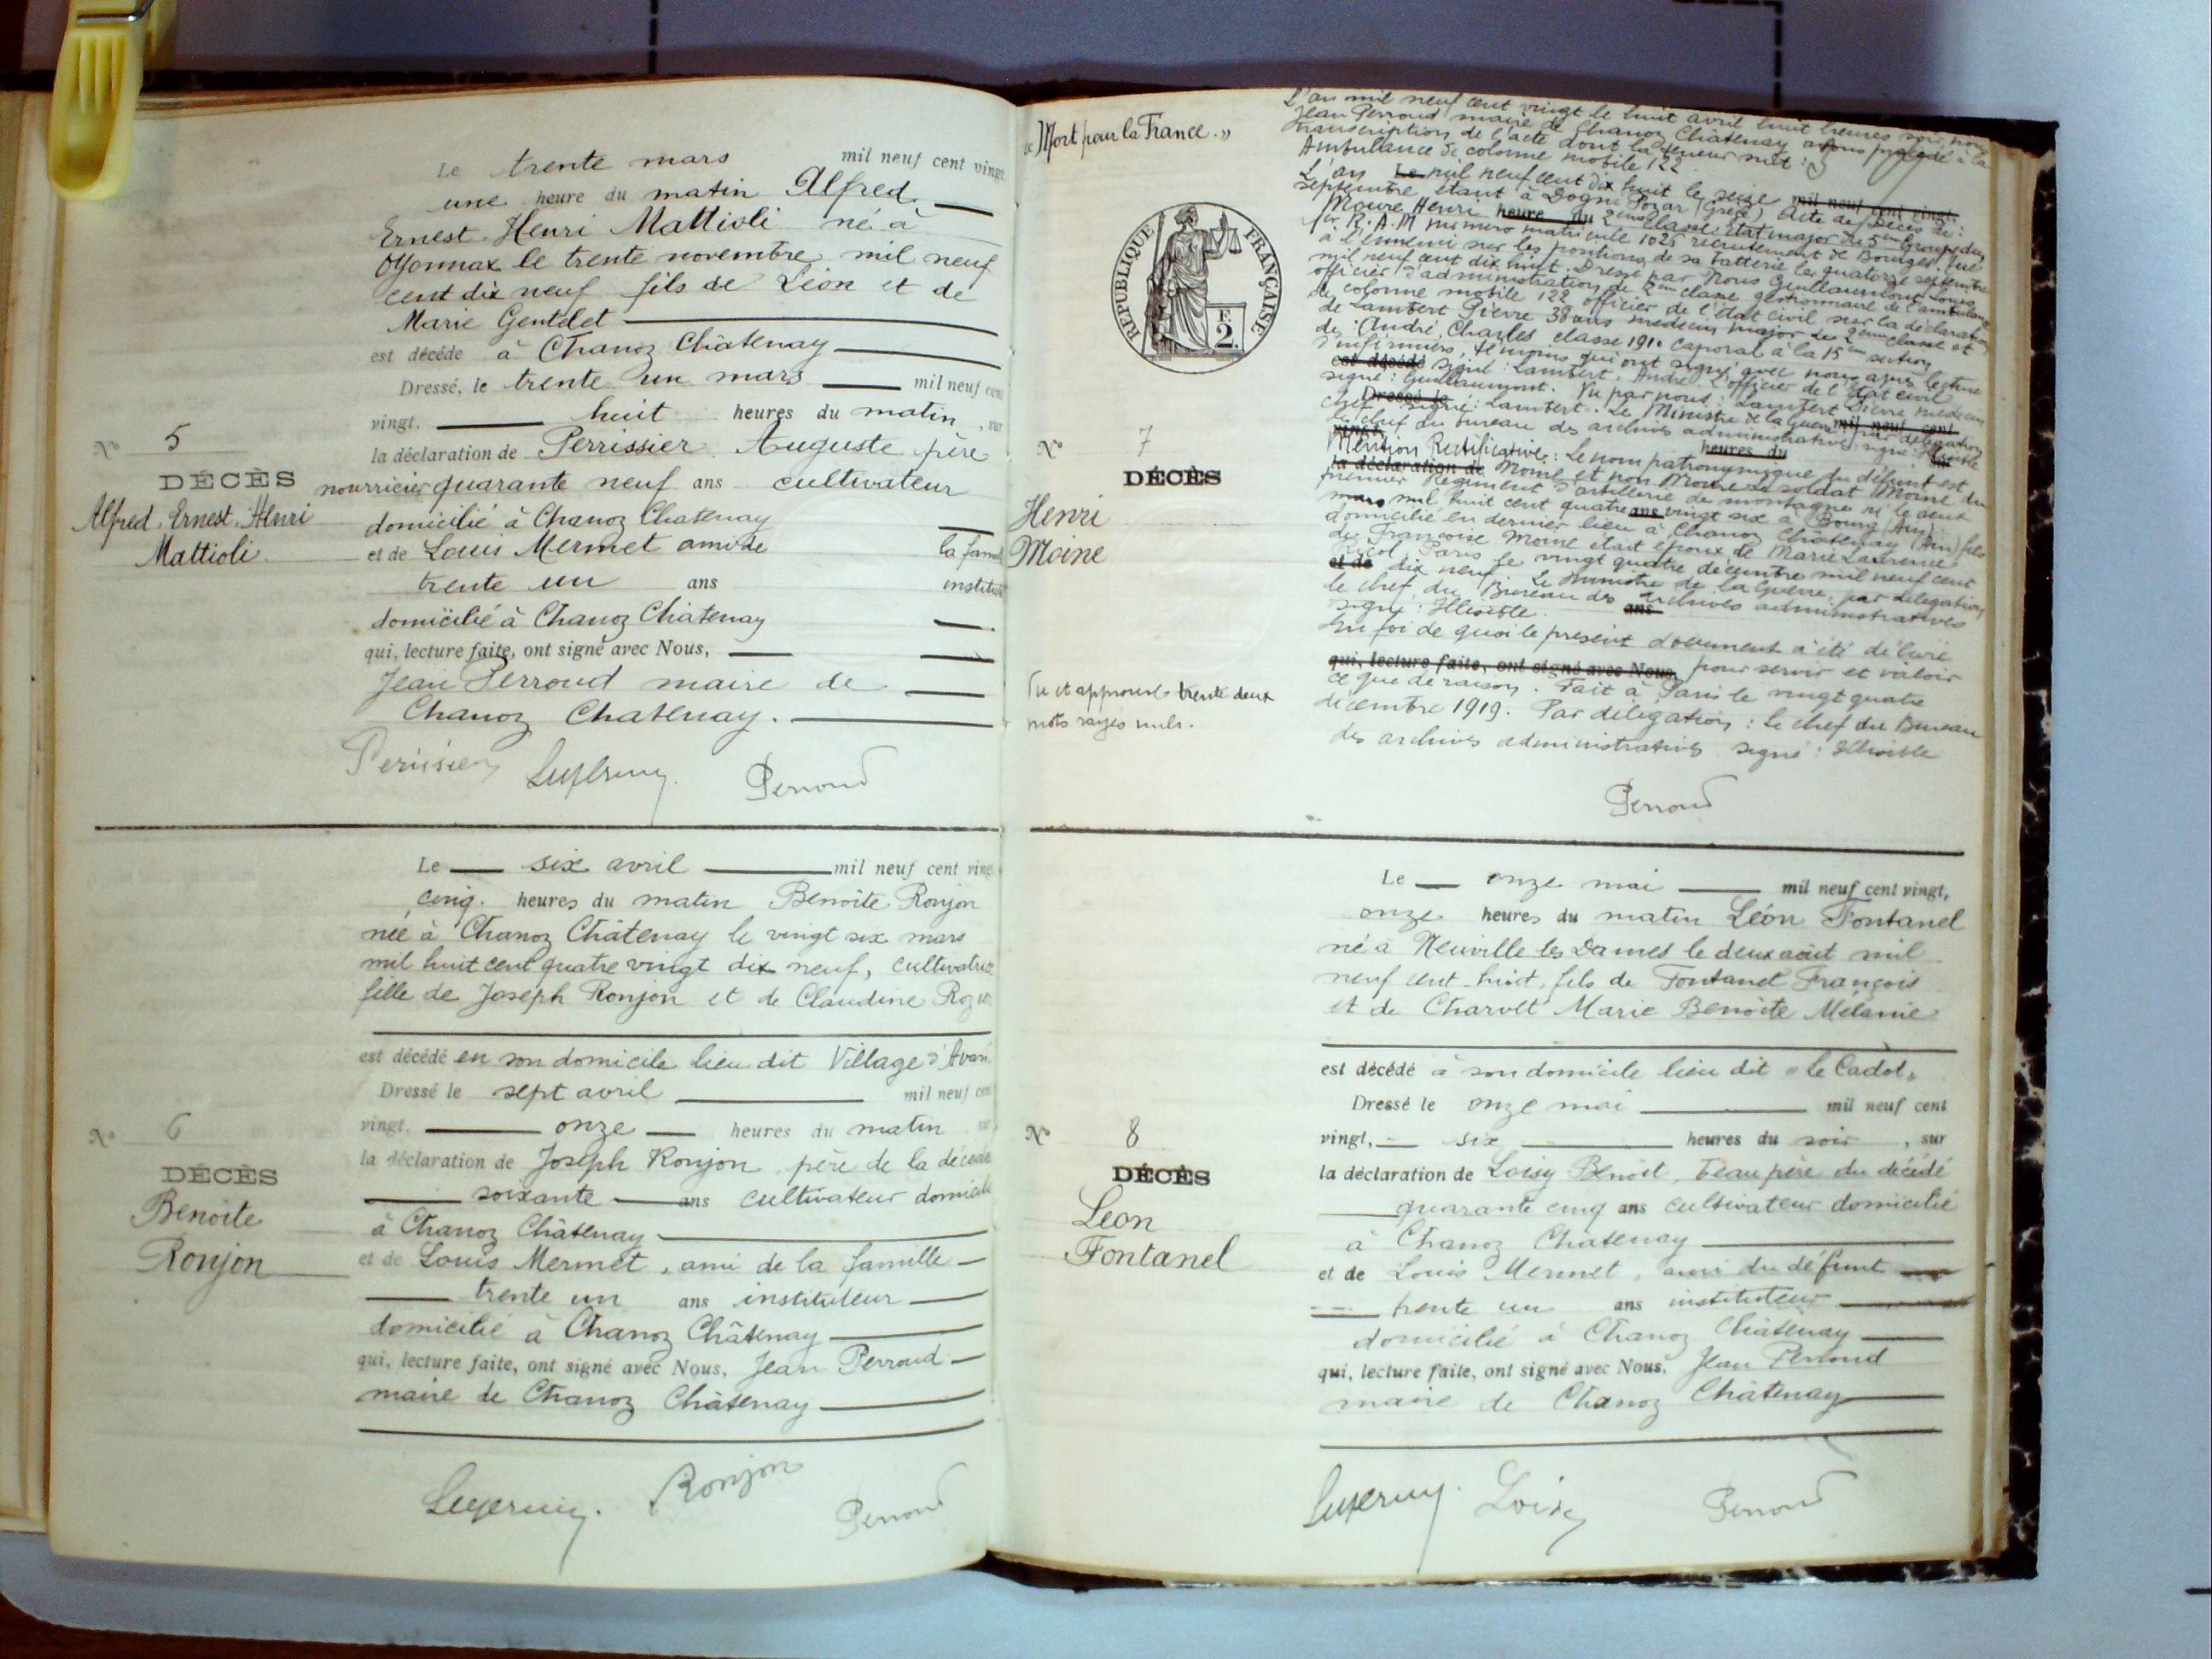 Le trente mars mil neuf cent vingt
une heure du matin Alfred
Ernest Henri Mattioli né à
Oyonnax le trente novembre mil neuf
cent dix neuf fils de Léon et de
Marie Gentelet
est décédé à Chanoz Châtenay
Dressé, le trente un mars mil neuf cent
vingt. huit heures du matin, sur
la déclaration de Perrissier Auguste père
nourricier quarante neuf ans cultivateur
domicilié à Chanoz Chatenay
et de Louis Mermet ami de la famille
trente un ans institut
domicilié à Chanoz Châtenay
qui, lecture faite, ont signé avec Nous,
Jean Perroud maire de
Chanoz Chatenay.
Perroud
N° 5
DÉCÈS
Alfred, Ernest, Henri
Mattioli
Le six avril mil neuf cent vingt
cinq heures du matin Benoîte Ronjon
née à Chanoz Châtenay le vingt six mars
mil huit cent quatre vingt dix neuf, cultivatrice
fille de Joseph Ronjon et de Claudine
est décédé en son domicile lieu dit Village d'
Dressé le sept avril mil neuf cent
vingt. onze heures du matin sur
la déclaration de Joseph Ronjon père de la décédée
soixante ans cultivateur domicilié
à Chanoz Châtenay
et de Louis Mermet, ami de la famille
trente un ans instituteur
domicilié à Chanoz Châtenay
qui, lecture faite, ont signé avec Nous, Jean Perroud
maire de Chanoz Châtenay
Ronjon
Perroud
N° 6
DÉCÈS
Benoîte
Ronjon
« Mort pour la France. »
RÉPUBLIQUE FRANÇAISE
E
2.
N° 7
DÉCÈS
Henri
Moine
Vu et approuvé trente deux
mots rayés nuls.
L'an mil neuf cent vingt le huit avril huit heures soir, nous
Jean Perroud maire de Chanoz Châtenay avons procédé à la
transcription de l'acte dont la teneur suit :
Ambulance de colonne mobile 122
L'an Le mil neuf cent dix huit le seize mil neuf cent vingt.
septembre étant à Dogni Pozar (Grèce) Acte de Décès de :
Moure Henri heure du 2eme classe état major du 5eme Groupe du
1er R.A.M numéro matricule 1025 recrutement de Bourges. tué
à l'ennemi sur les positions de sa batterie le quatorze septembre
mil neuf cent dix huit. Dressé par Nous Guillaumont Louis
officier d'administration de 2eme classe gestionnaire de l'ambulance
de colonne mobile 122 officier de l'état civil sur la déclaration
de Lambert Pierre 38 ans médecin major de 2eme classe et
de André Charles classe 1910 caporal à la 15eme section
d'infirmiers, témoins qui ont signé avec nous après lecture
est décédé signé : Lambert, André. L'officier de l'état civil
signé : Guillaumont. Vu par nous : Lambert Pierre médecin
Dressé le
chef signé : Lambert. Le Ministre de la Guerre mil neuf cent par délégation
le chef du bureau des archives administratives signé : Illisible
vingt, heures du sur
Mention Rectificative : Le nom patronymique du défunt est
la déclaration de Moine et non Moure le soldat Moine du
premier Régiment d'artillerie de montagne né le deux
mars mil huit cent quatre ans vingt six à Bourg (Ain)
domicilié en dernier lieu à Chanoz Châtenay (Ain) fils
de Françoise Moine était époux de Marie Laurence
Paris le vingt quatre décembre mil neuf cent
et de dix neuf. Le Ministre de la Guerre, par délégation
le chef du Bureau des archives administratives
signé : Illisible. ans
En foi de quoi le présent document a été délivré
qui, lecture faite, ont signé avec Nous, pour servir et valoir
ce que de raison. Fait à Paris le vingt quatre
décembre 1919. Par délégation : le chef du Bureau
des archives administratives signé : Illisible
Perroud
Le onze mai mil neuf cent vingt,
onze heures du matin Léon Fontanel
né à Neuville les Dames le deux août mil
neuf cent huit, fils de Fontanel François
et de Charvet Marie Benoîte Mélanie
est décédé à son domicile lieu dit « Le Cadot »
Dressé le onze mai mil neuf cent
vingt, six heures du soir, sur
la déclaration de Loisy Benoît, beau père du décédé
quarante cinq ans cultivateur domicilié
à Chanoz Chatenay
et de Louis Mermet, ami du défunt
trente un ans instituteur
domicilié à Chanoz Châtenay
qui, lecture faite, ont signé avec Nous, Jean Perroud
maire de Chanoz Châtenay
Loisy
Perroud
N° 8
DÉCÈS
Léon
Fontanel